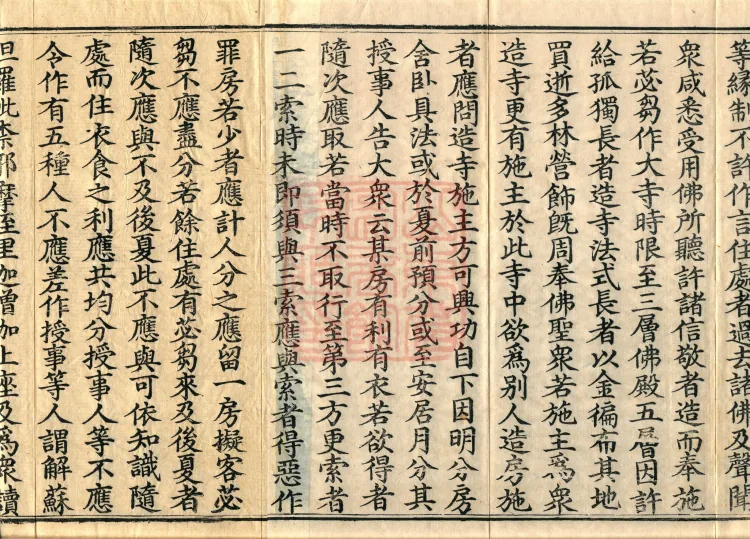 等緣制不許作言住處者過去諸佛及聲聞
衆咸悉受用佛所聽許諸信敬者造而奉施
若苾芻作大寺時限至三層佛殿五層因許
給孤獨長者造寺法式長者以金徧布其地
買逝多林營飾旣周奉佛聖衆若施主爲衆
造寺更有施主於此寺中欲爲別人造房施
者應問造寺施主方可興功自下因明分房
舍卧具法或於夏前預分或至安居月分其
授事人告大衆云某房有利有衣若欲得者
隨次應取若當時不取行至第三方更索者
一二索時未即須與三索應與索者得惡作
罪房若少者應計人分之應留一房擬客苾
芻不應盡分若餘住處有苾芻來及後夏者
隨次應與不及後夏此不應與可依知識隨
處而住衣食之利應共均分授事人等不應
令作有五種人不應差作授事等人謂解蘇
怛羅毗柰耶摩窒里迦僧伽上座及爲衆讀